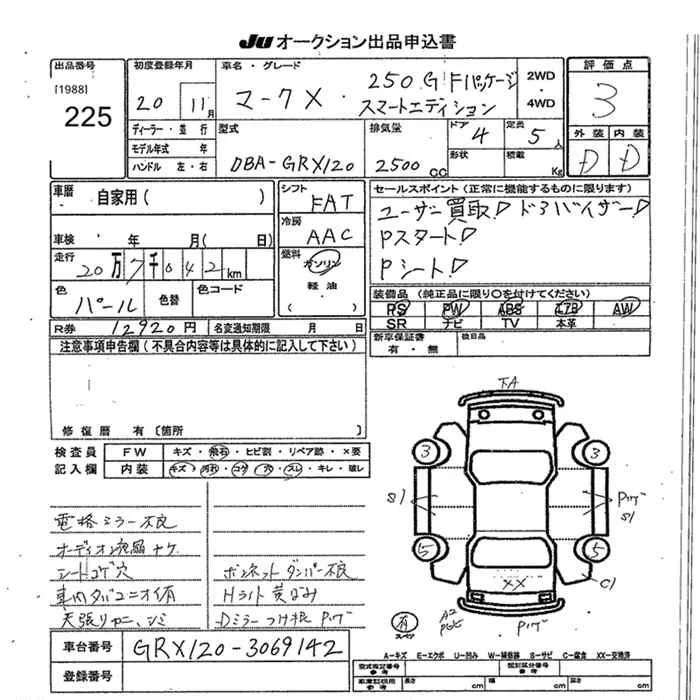 JU オークション出品申込書
出品番号
[1988]
225
初度登録年月
20 11月
車名・グレード
マークX 250G Fパッケージ
スマートエディション
2WD
4WD
評価点
3
外装 内装
D D
ディーラー・並行
モデル年式 年
ハンドル 左・右
型式
DBA-GRX120
排気量
2500 CC
ドア 4
形状
定員 5人
積載 Kg
車歴 自家用( )
車検 年 月( 日)
走行
20万7千042km
色
パール
色替
色コード
シフト
FAT
冷房
AAC
燃料
ガソリン
軽油
( )
セールスポイント(正常に機能するものに限ります)
ユーザー買取! ドアバイザー!
Pスタート!
Pシート!
装備品(純正品に限り〇を付けてください)
PS PW ABS エアB AW
SR ナビ TV 本革
新車保証書
有・無
後日品
R券 12920円 名変通知期限 月 日
注意事項申告欄(不具合内容等は具体的に記入して下さい)
修復歴 有〔箇所 〕
検査員
記入欄
FW キズ・飛石・ヒビ割・リペア跡・×要
内装 キズ・汚れ・コゲ・穴・スレ・キレ・破し
電格ミラー不良
オーディオ液晶ナケ
シートコゲ穴
車内タバコニオイ有
天張り シミ
ボンネットダンパー不良
Hライト黄ばみ
Dミラーつけ根 Pツゲ
車台番号 GRX120-3069142
登録番号
3 3
S1
Pツゲ
S1
5 5
XX
C1
有
スペア
A2
Pツゲ
A-キズ E-エクボ U-凹み W-補修跡 S-サビ C-腐食 XX-交換済
型式指定番号
参考
類別区分番号
参考
車庫証明用
参考
長さ cm 幅 cm 高さ cm